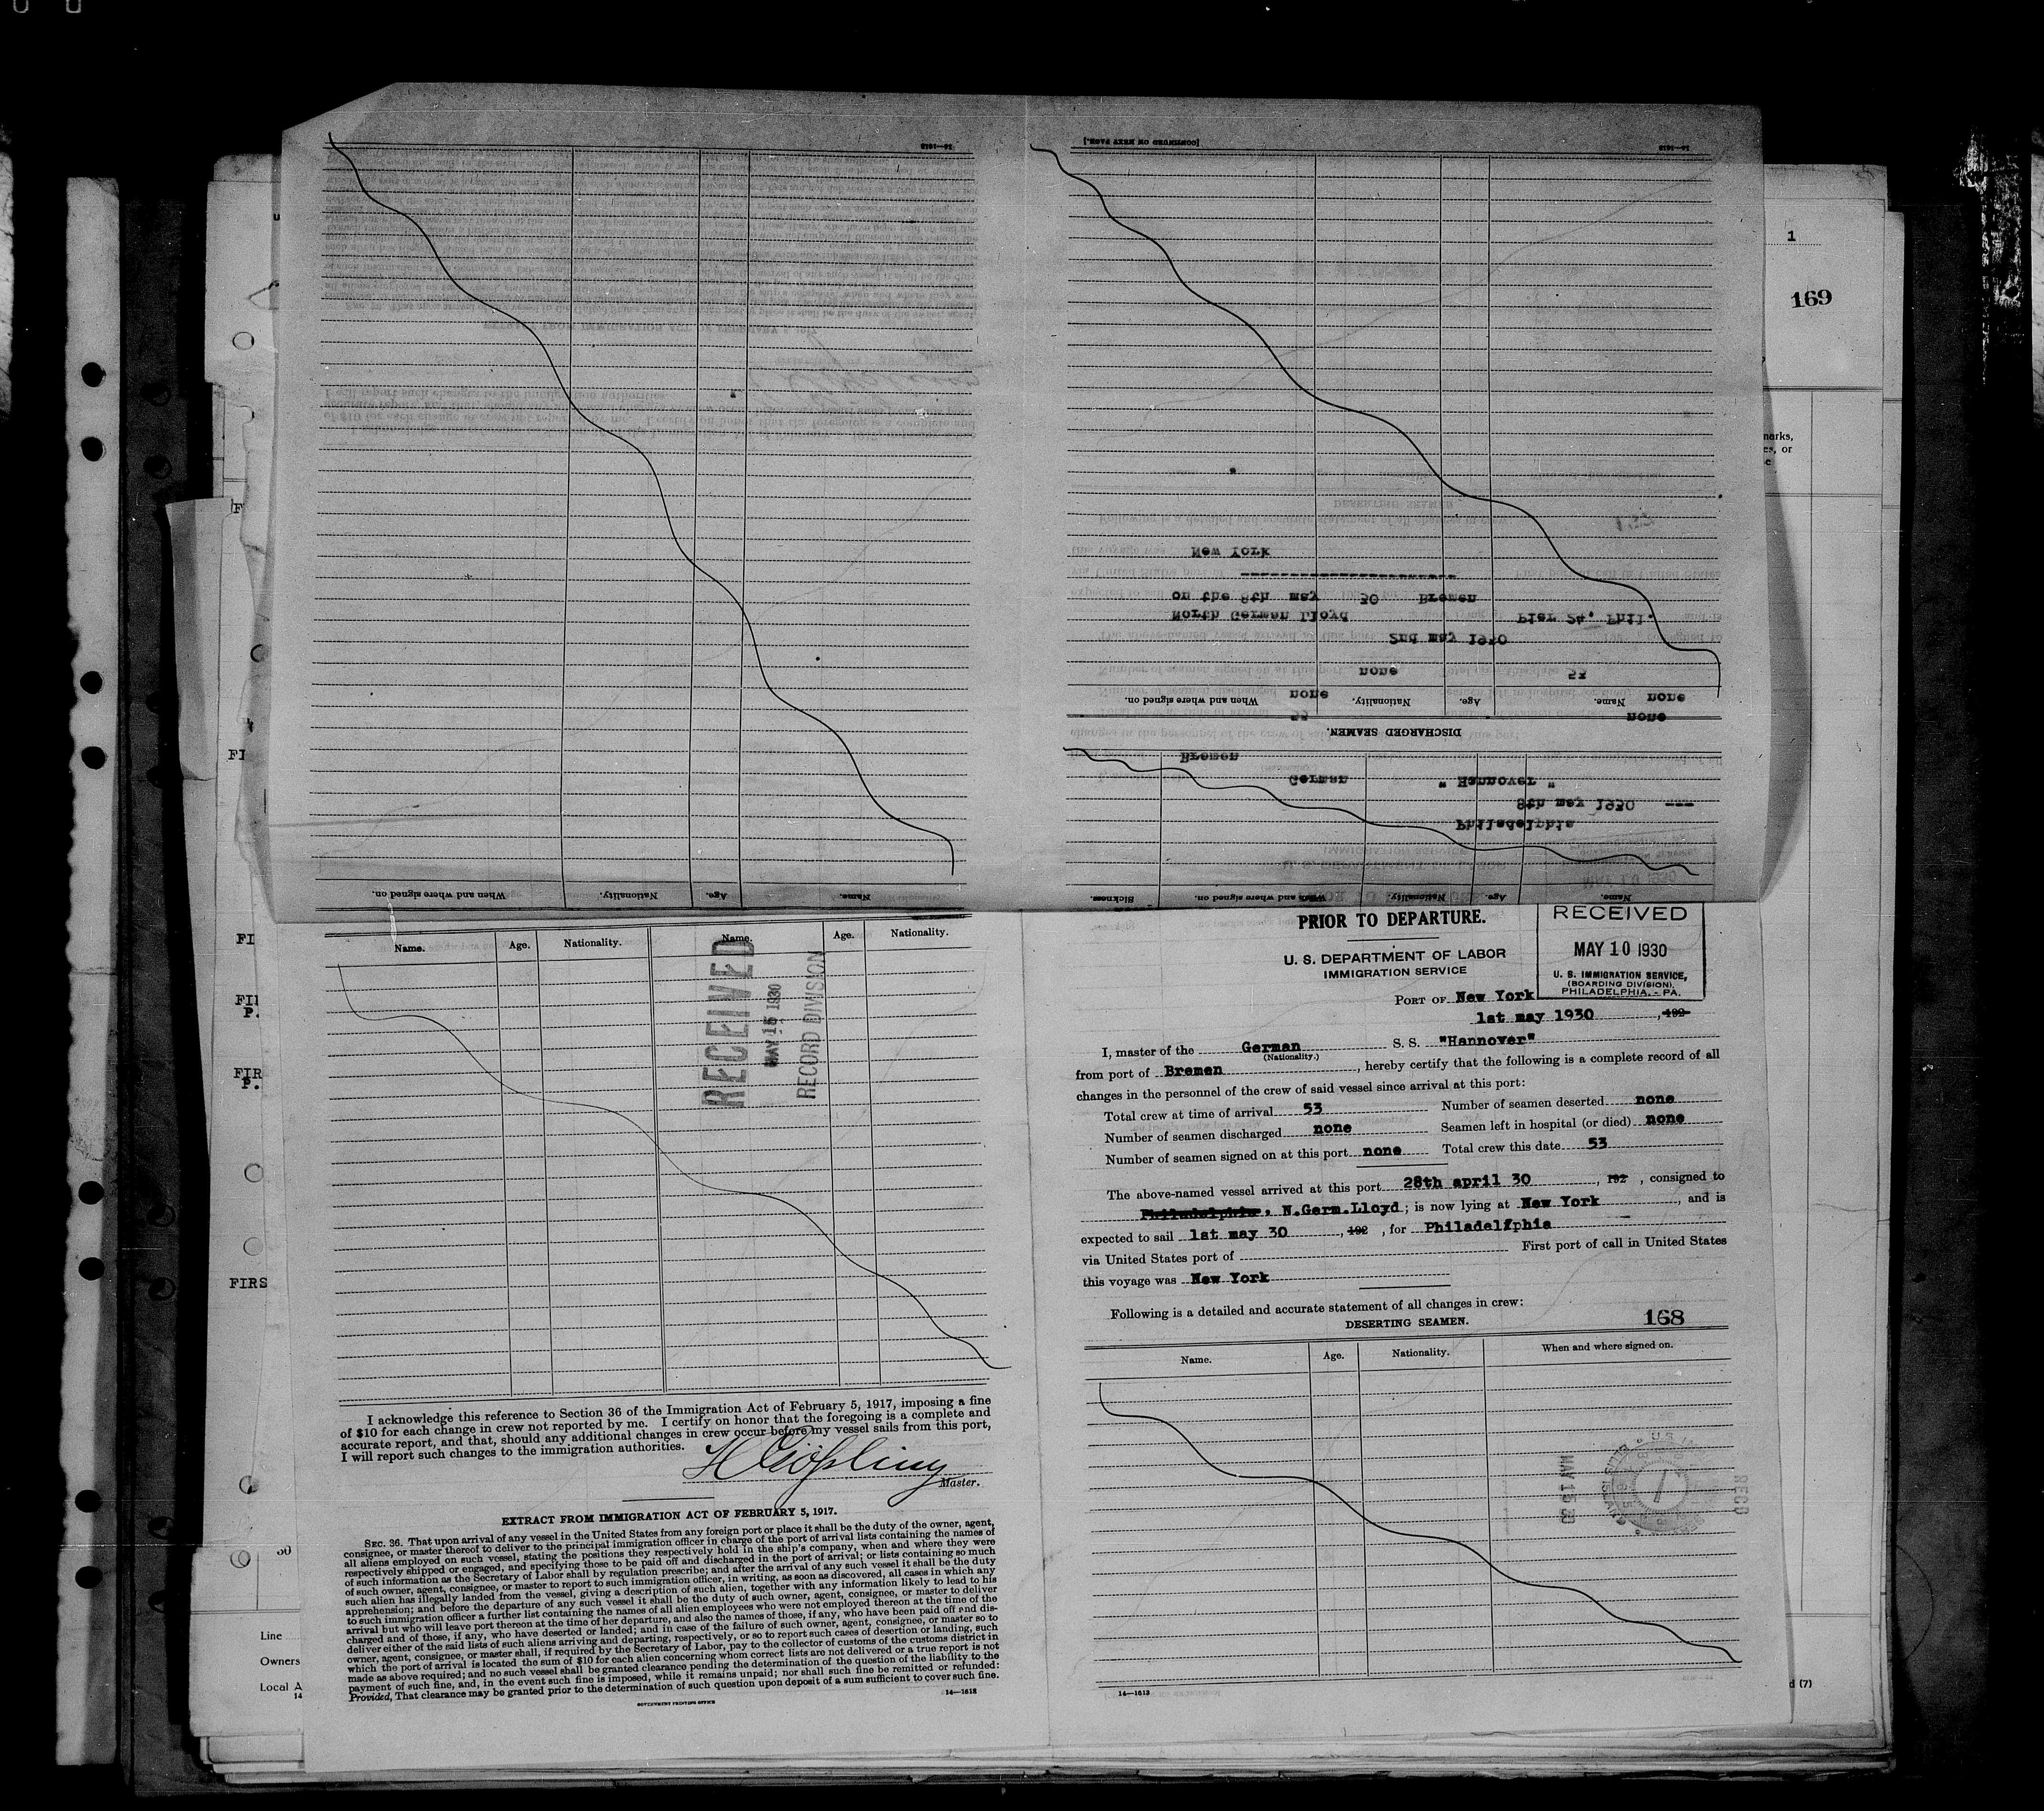 [CONTINUED ON NEXT PAGE.]
14—1613
14—1613
New York
on the 8th may 30 Bremen
North German Lloyd Pier 24. Phil.
2nd may 1930
none 53
none none
When and where signed on. Nationality. Age. Name.
none
53
DISCHARGED SEAMEN.
Bremen
German " Hannover "
8th may 1930 ---
Philadelphia
When and where signed on. Nationality. Age. Name.
Sickness. When and where signed on. Nationality. Age. Name.
1
169
marks,
es, or
Name. Age. Nationality. Name. Age. Nationality.
RECEIVED
MAY 15 1930
RECORD DIVISION
I acknowledge this reference to Section 36 of the Immigration Act of February 5, 1917, imposing a fine
of $10 for each change in crew not reported by me. I certify on honor that the foregoing is a complete and
accurate report, and that, should any additional changes in crew occur before my vessel sails from this port,
I will report such changes to the immigration authorities.
Master.
EXTRACT FROM IMMIGRATION ACT OF FEBRUARY 5, 1917.
SEC. 36. That upon arrival of any vessel in the United States from any foreign port or place it shall be the duty of the owner, agent,
consignee, or master thereof to deliver to the principal immigration officer in charge of the port of arrival lists containing the names of
all aliens employed on such vessel, stating the positions they respectively hold in the ship's company, when and where they were
respectively shipped or engaged, and specifying those to be paid off and discharged in the port of arrival; or lists containing so much
of such information as the Secretary of Labor shall by regulation prescribe; and after the arrival of any such vessel it shall be the duty
of such owner, agent, consignee, or master to report to such immigration officer, in writing, as soon as discovered, all cases in which any
such alien has illegally landed from the vessel, giving a description of such alien, together with any information likely to lead to his
apprehension; and before the departure of any such vessel it shall be the duty of such owner, agent, consignee, or master to deliver
to such immigration officer a further list containing the names of all alien employees who were not employed thereon at the time of the
arrival but who will leave port thereon at the time of her departure, and also the names of those, if any, who have been paid off and dis-
charged and of those, if any, who have deserted or landed; and in case of the failure of such owner, agent, consignee, or master so to
deliver either of the said lists of such aliens arriving and departing, respectively, or so to report such cases of desertion or landing, such
owner, agent, consignee, or master shall, if required by the Secretary of Labor, pay to the collector of customs of the customs district in
which the port of arrival is located the sum of $10 for each alien concerning whom correct lists are not delivered or a true report is not
made as above required; and no such vessel shall be granted clearance pending the determination of the question of the liability to the
payment of such fine, and, in the event such fine is imposed, while it remains unpaid; nor shall such fine be remitted or refunded:
Provided, That clearance may be granted prior to the determination of such question upon deposit of a sum sufficient to cover such fine.
GOVERNMENT PRINTING OFFICE 14—1613
PRIOR TO DEPARTURE.
RECEIVED
MAY 10 1930
U. S. IMMIGRATION SERVICE,
(BOARDING DIVISION),
PHILADELPHIA, - PA.
U. S. DEPARTMENT OF LABOR
IMMIGRATION SERVICE
PORT OF New York
1st may 1930, 192
I, master of the German S. S. "Hannover"
(Nationality.)
from port of Bremen, hereby certify that the following is a complete record of all
changes in the personnel of the crew of said vessel since arrival at this port:
Total crew at time of arrival 53 Number of seamen deserted none
Number of seamen discharged none Seamen left in hospital (or died) none
Number of seamen signed on at this port none Total crew this date 53
The above-named vessel arrived at this port 28th april 30, 192, consigned to
Philadelphia, N.Germ.Lloyd; is now lying at New York, and is
expected to sail 1st may 30, 192, for Philadelfphia
via United States port of First port of call in United States
this voyage was New York
Following is a detailed and accurate statement of all changes in crew:
168
DESERTING SEAMEN.
Name. Age. Nationality. When and where signed on.
MAY 15 30
RECD
14—1613
FI
FI
FIR
P.
FIRS
Line
Owners
Local A
14
d (7)